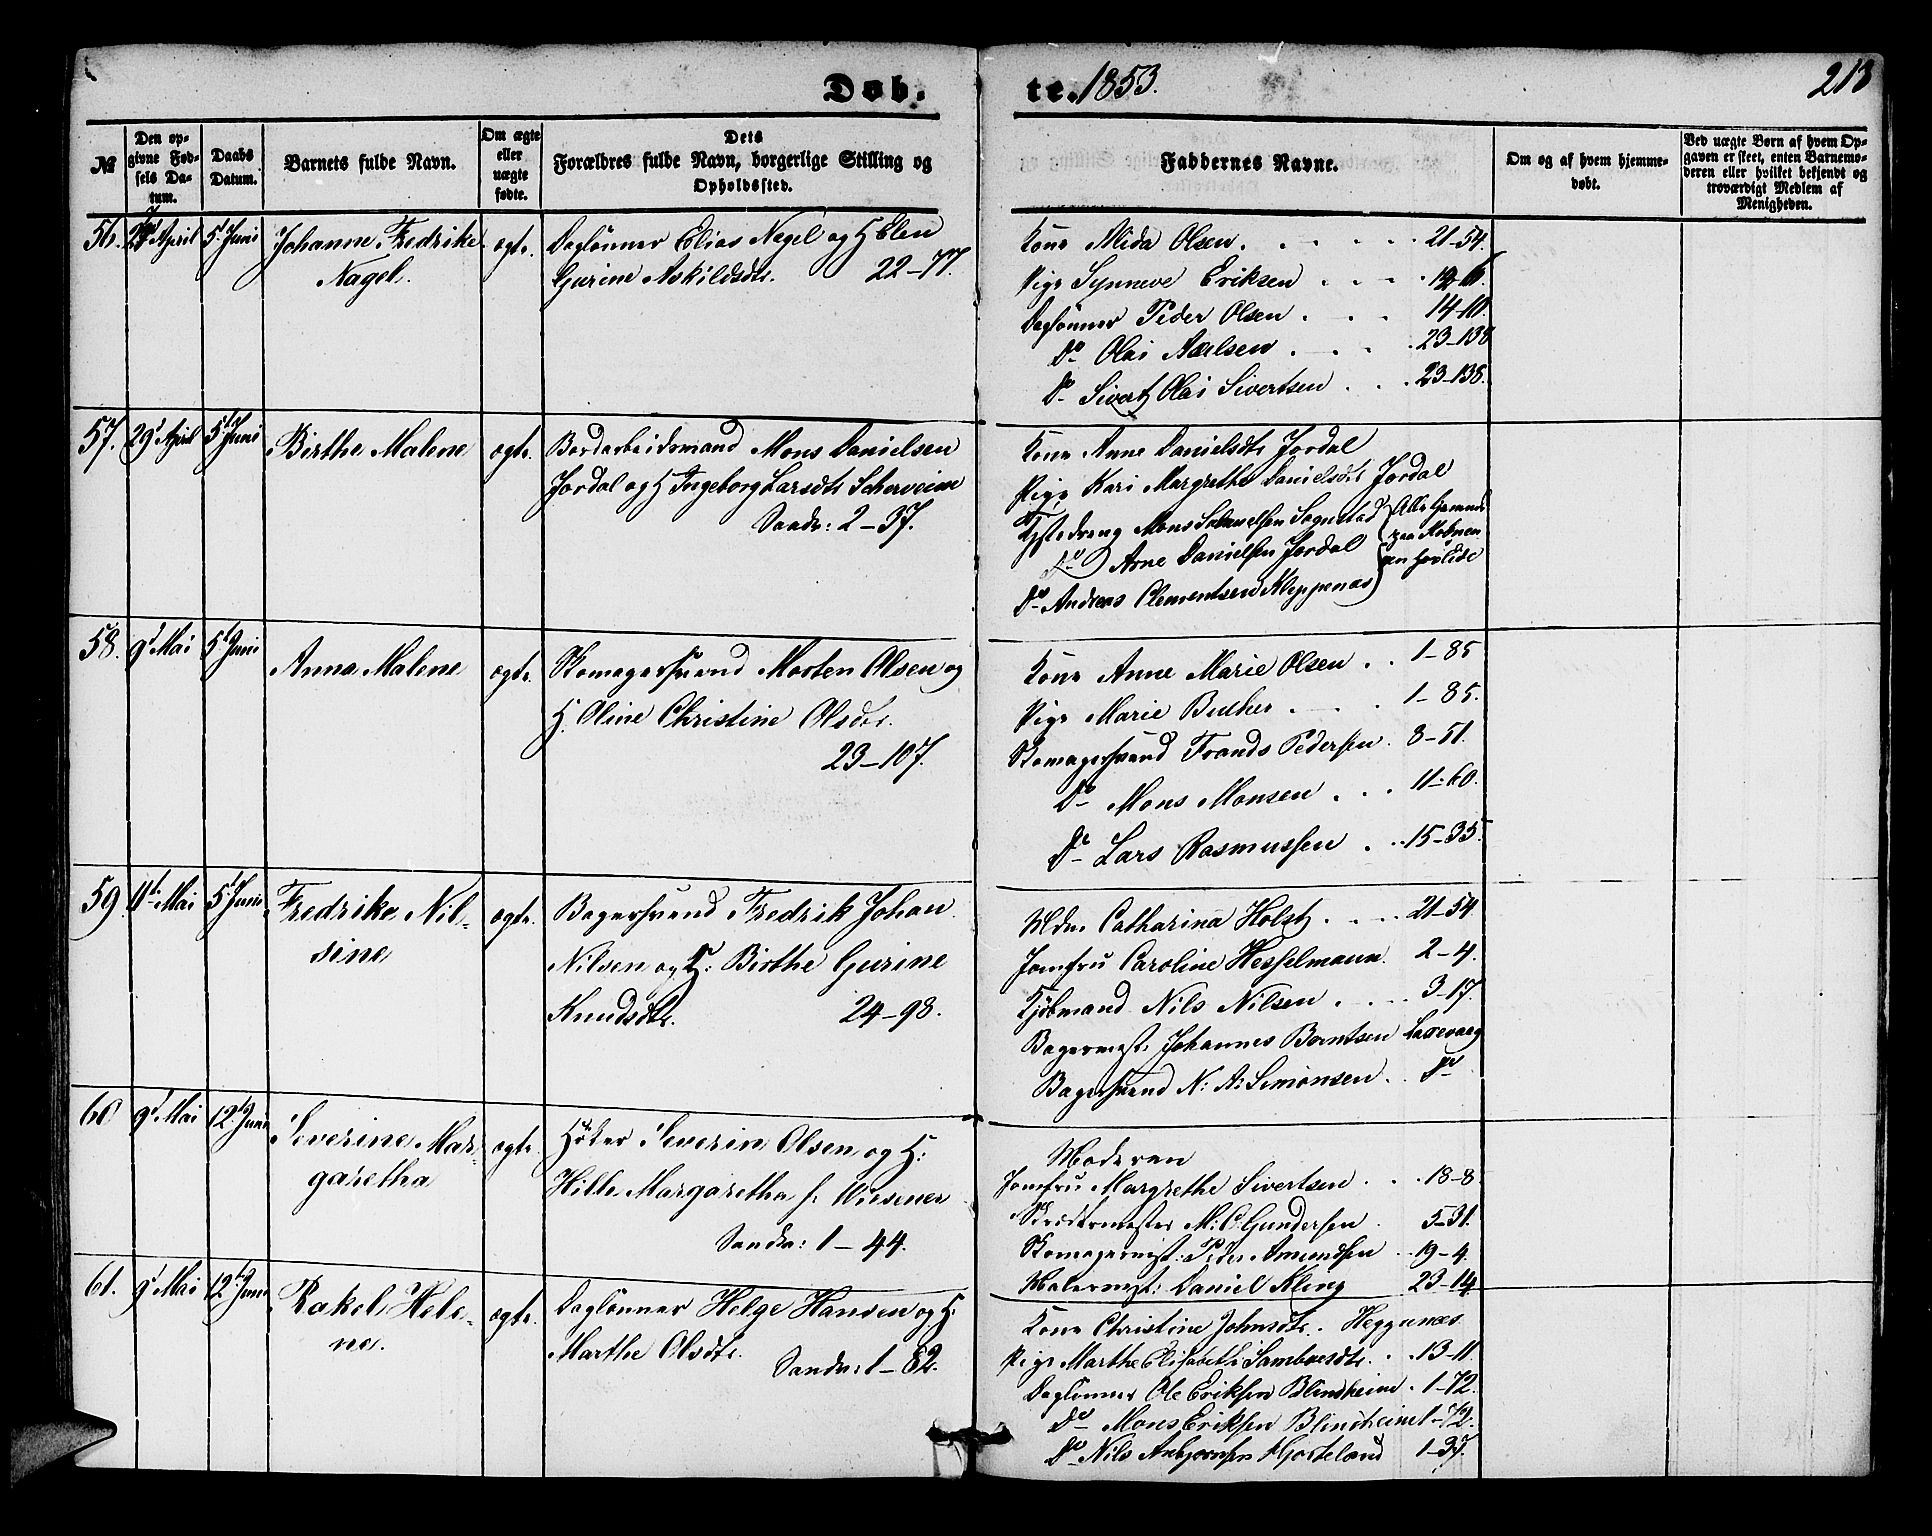 Døb.
te. 1853.
213
№
Den op-
givne Fød-
sels Da-
tum.
Daabs
Datum.
Barnets fulde Navn.
Om ægte
eller
uægte
fødte.
Dets
Forældres fulde Navn, borgerlige Stilling og
Opholdssted.
Faddernes Navne.
Om og af hvem hjemme-
døbt.
Ved uægte Børn af hvem Op-
gaven er skeet, enten Barnemo-
deren eller hvilket bekjendt og
troværdigt Medlem af
Menigheden.
56. April 5. Juni Johanne Fredrike
Nagel.
ægte. Daglønner Elias Nagel og H Elen
Gurine Askildsdt. 22-77.
Kone Alida Olsen. 21-54.
Pige Synneve Eriksen
Dagsønner Peder Olsen. 14-10.
Do Olai Axelsen. 23-138
Do Sivert Olai Sivertsen. 23-138.
57. 29d April 5d Juni Birthe Malene
ægte. Bordarbeidsmand Mons Danielsen
Jordal og H Ingeborg Larsdt. Scherveim
Sandv: 2-37.
Kone Anne Danielsdt. Jordal
Pige Kari Margrethe Danielsdt. Jordal
Mons Samuelsen Sognstad
Do Arne Danielsen Jordal
Do Andreas Clementsen Kleppenæs
58. 9d Mai 5d Juni Anna Malene
ægte. Skomagersvend Morten Olsen og
H. Oline Christine Olsdt.
23-107.
Kone Anne Marie Olsen. 1-85
Pige Marie Buther. 1-85.
Skomagersvend Frands Pedersen. 8-51.
Do Mons Monsen. 11-60.
Do Lars Rasmussen. 15-35
59. 11te Mai 5d Juni Fredrike Nil-
sine
ægte. Bagersvend Fredrik Johan
Nilsen og H: Birthe Gurine
Knudsdt. 24-98.
Mdm. Catharina Holst. 21-54
Jomfru Caroline Hesselmann. 2-4.
Kjøbmand Nils Nilsen. 3-17.
Bagermest. Johannes Berntsen Laxevaag
Bagersvend N: A: Simonsen. Do
60 9d Mai 12t Juni Severine Mar-
garetha
ægte. Høker Severin Olsen og H:
Hille Margaretha f. Wiesener
Sandv: 1-44.
Moderen
Jomfru Margrethe Sivertsen. 18-8
Skrædermester M: C. Gundersen 5-31.
Skomagermest: Peder Amundsen 19-4.
Malermest: Daniel Kling 23-14
61. 9d Mai 12t Juni Rakel Hele-
ne.
ægte. Daglønner Helge Hansen og H:
Marthe Olsdt. Sandv: 1-82.
Kone Christine Johnsdt. Heggenæs
Pige Marthe Elisabeth Lambresdt. 13-11.
Daglønner Ole Eriksen Blindheim. 1-72.
Do Mons Eriksen Blindheim 1-72.
Do Nils Anbjørnsen Hjorteland 1-37.